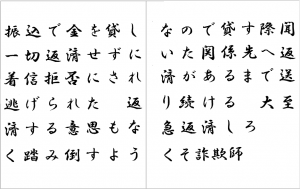 振込で金を貸し
一切返済せずに
着信拒否にされ
逃げられた　返
済する意思もな
く踏み倒すよう
なので貸す際聞
いた関係先へ返
済があるまで送
り続ける　大至
急返済しろ
くそ詐欺師